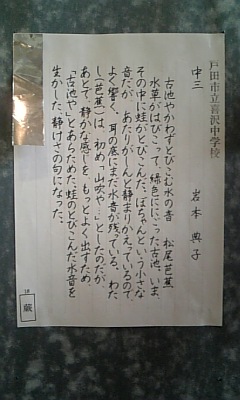 戸田市立喜沢中学校
中三　岩本典子
古池やかわずとびこむ水の音　松尾芭蕉
水草がはびこって、緑色ににごった古池、いま、
その中に蛙がとびこんだ。ぽちゃんという小さな
音だが、あたりがしーんと静まりかえっているので、
よく響く。耳の底にまだ水音が残っている。わた
し（芭蕉）は、初め「山吹や」としたのだが、
あとで、静かな感じを、もっとよく出すため、
「古池や」とあらためた。蛙のとびこんだ水音を
生かした、静けさの句になった。
18
蕨